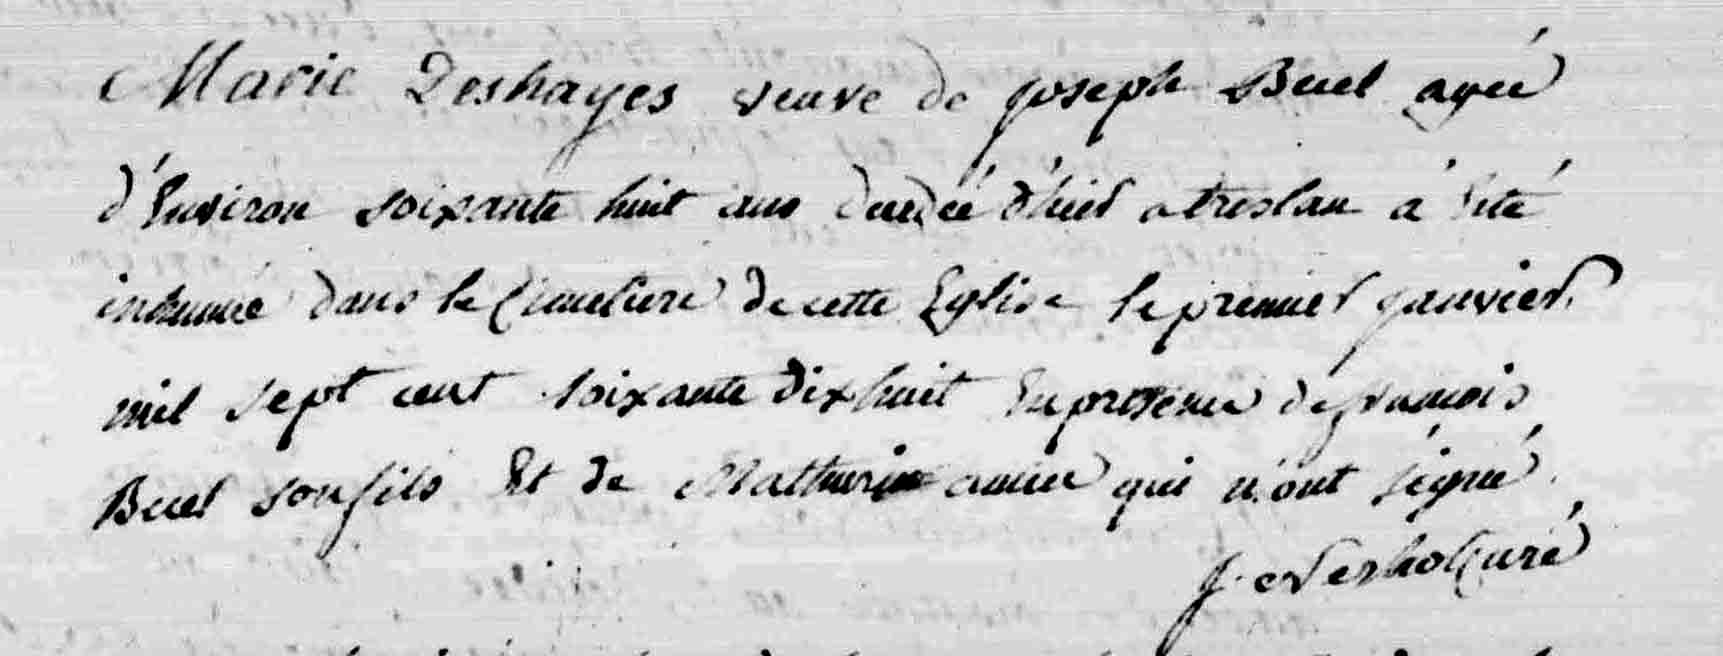 Marie Deshayes veuve de joseph Buel agée
d'Environ soixante huit ans decedée d'hier a treslan a Eté
inhumée dans le Cimetiere de cette Eglise le premier janvier
mil sept cent soixante dix huit En presence de francois
Buel son fils Et de Mathurin qui n'ont signé
j. Curé